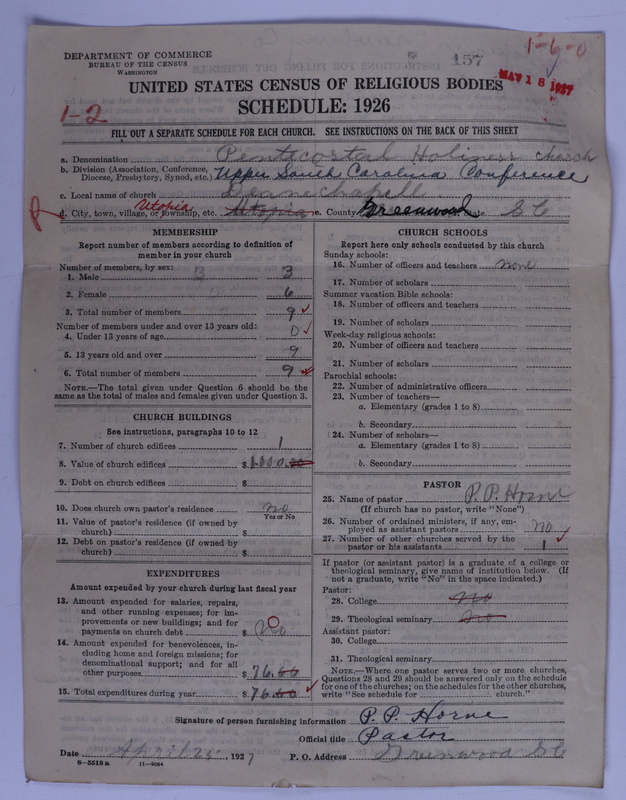 157
1-6-0
DEPARTMENT OF COMMERCE
BUREAU OF THE CENSUS
WASHINGTON
MAY 18 1927
UNITED STATES CENSUS OF RELIGIOUS BODIES
SCHEDULE: 1926
1-2
FILL OUT A SEPARATE SCHEDULE FOR EACH CHURCH. SEE INSTRUCTIONS ON THE BACK OF THIS SHEET
a. Denomination Pentecostal Holiness church
b. Division (Association, Conference, Diocese, Presbytery, Synod, etc.) Upper South Carolina Conference
c. Local name of church
d. City, town, village, or township, etc. Utopia Utopia e. County Greenwood State S C
MEMBERSHIP
Report number of members according to definition of
member in your church
Number of members, by sex:
1. Male 3
2. Female 6
3. Total number of members 9
Number of members under and over 13 years old:
4. Under 13 years of age 0
5. 13 years old and over 9
6. Total number of members 9
NOTE.—The total given under Question 6 should be the
same as the total of males and females given under Question 3.
CHURCH BUILDINGS
See instructions, paragraphs 10 to 12
7. Number of church edifices 1
8. Value of church edifices $ 1000.00
9. Debt on church edifices $
10. Does church own pastor's residence no
Yes or No
11. Value of pastor's residence (if owned by
church) $
12. Debt on pastor's residence (if owned by
church) $
EXPENDITURES
Amount expended by your church during last fiscal year
13. Amount expended for salaries, repairs,
and other running expenses; for im-
provements or new buildings; and for
payments on church debt $ no
14. Amount expended for benevolences, in-
cluding home and foreign missions; for
denominational support; and for all
other purposes $ 76.
15. Total expenditures during year $ 76.
CHURCH SCHOOLS
Report here only schools conducted by this church
Sunday schools:
16. Number of officers and teachers none
17. Number of scholars
Summer vacation Bible schools:
18. Number of officers and teachers
19. Number of scholars
Week-day religious schools:
20. Number of officers and teachers
21. Number of scholars
Parochial schools:
22. Number of administrative officers
23. Number of teachers—
a. Elementary (grades 1 to 8)
b. Secondary
24. Number of scholars—
a. Elementary (grades 1 to 8)
b. Secondary
PASTOR
25. Name of pastor P. P. Horne
(If church has no pastor, write "None")
26. Number of ordained ministers, if any, em-
ployed as assistant pastors no
27. Number of other churches served by the
pastor or his assistants 1
If pastor (or assistant pastor) is a graduate of a college or
theological seminary, give name of institution below. (If
not a graduate, write "No" in the space indicated.)
Pastor:
28. College No
29. Theological seminary No
Assistant pastor:
30. College
31. Theological seminary
NOTE.—Where one pastor serves two or more churches,
Questions 28 and 29 should be answered only on the schedule
for one of the churches; on the schedules for the other churches,
write "See schedule for church."
Signature of person furnishing information P. P. Horne
Official title Pastor
Date April 25, 1927 P. O. Address Greenwood S C
6-5518a 11-9054